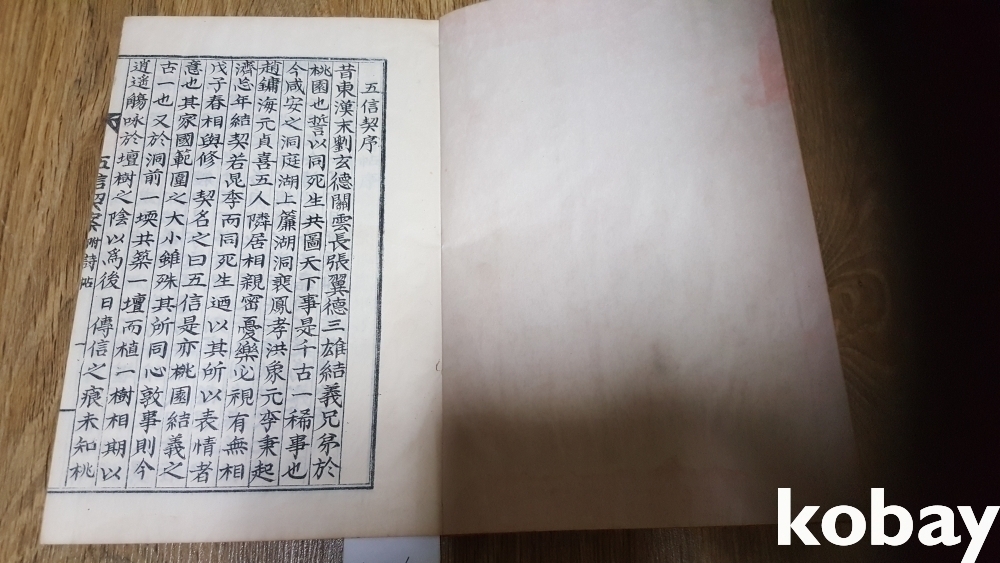 五信契序
昔東漢末劉玄德關雲長張翼德三雄結義兄弟於
桃園也誓以同死生共圖天下事是千古一稀事也
今咸安之洞庭湖上簾湖洞裵鳳孝洪象元李秉起
趙鏞海元貞喜五人隣居相親密憂樂必視有無相
濟忘年結契若昆季而同死生迺以其所以表情者
戊子春相與修一契名之曰五信是亦桃園結義之
意也其家國範圍之大小雖殊其所同心敦事則今
古一也又於洞前一堧共築一壇而植一樹相期以
逍遙觴咏於壇樹之陰以爲後日傳信之痕未知桃
五信契案 附詩帖
一
kobay